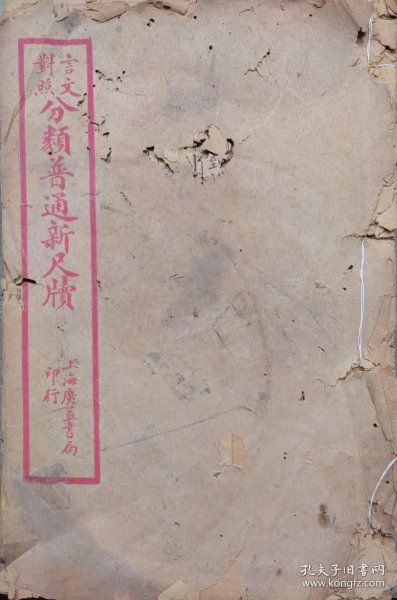 言文對照
分類普通新尺牘
上海廣益書局
印行
孔夫子旧书网
www.kongfz.com